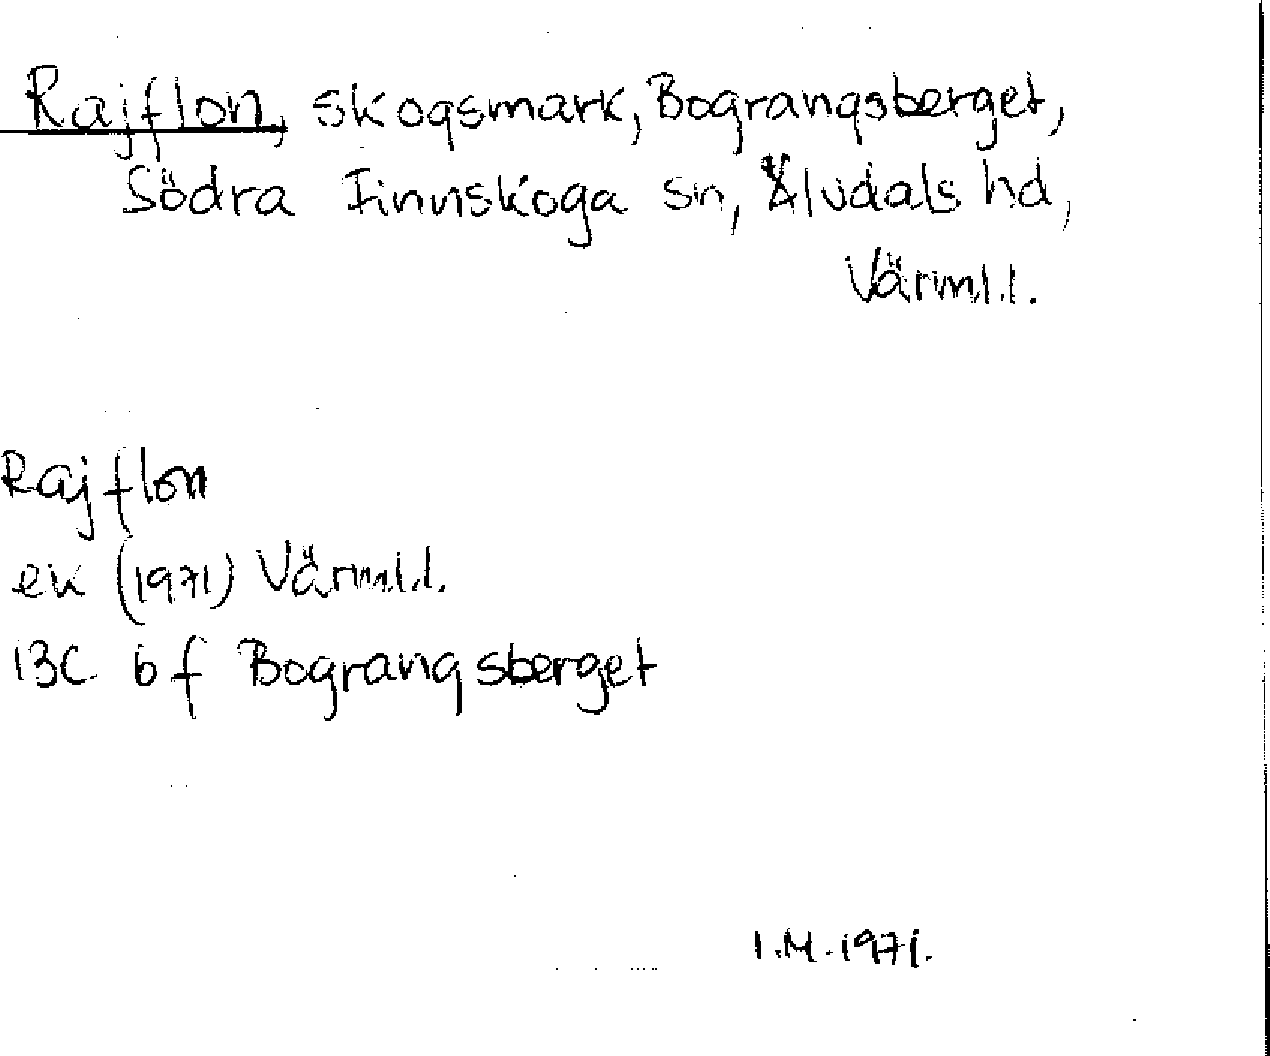 Rajflon, skogsmark, Bograngsberget,
Södra Finnskoga sn, Älvdals hd,
Värml.l.
Rajflon
ek (1971) Värml.l.
13C 6f Bograngsberget
I.M. 1971.